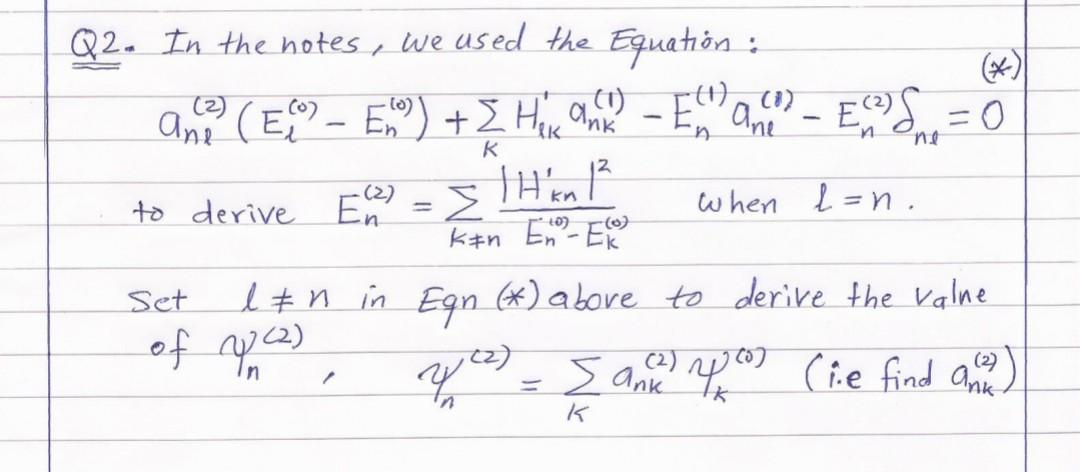 Q2. In the notes, we used the Equation :
(*)
aₙₗ⁽²⁾ (Eₗ⁽⁰⁾ – Eₙ⁽⁰⁾) + Σ_K H'ₗₖ aₙₖ⁽¹⁾ – Eₙ⁽¹⁾ aₙₗ⁽¹⁾ – Eₙ⁽²⁾ δₙₗ = 0
to derive Eₙ⁽²⁾ = Σ_{K≠n} |H'ₖₙ|² / (Eₙ⁽⁰⁾ – Eₖ⁽⁰⁾) when l = n .
Set l ≠ n in Eqn (*) above to derive the value
of ψₙ⁽²⁾ , ψₙ⁽²⁾ = Σ_K aₙₖ⁽²⁾ ψₖ⁽⁰⁾ (i.e find aₙₖ⁽²⁾)